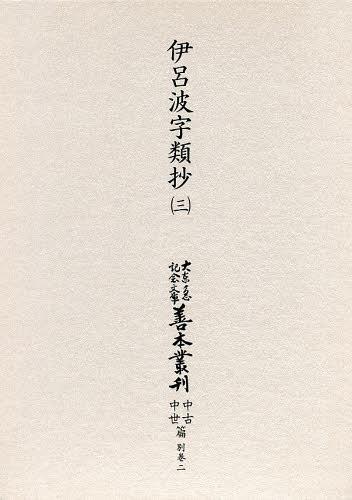 伊呂波字類抄(三)
大東急記念文庫
善本叢刊
中古中世篇 別巻二